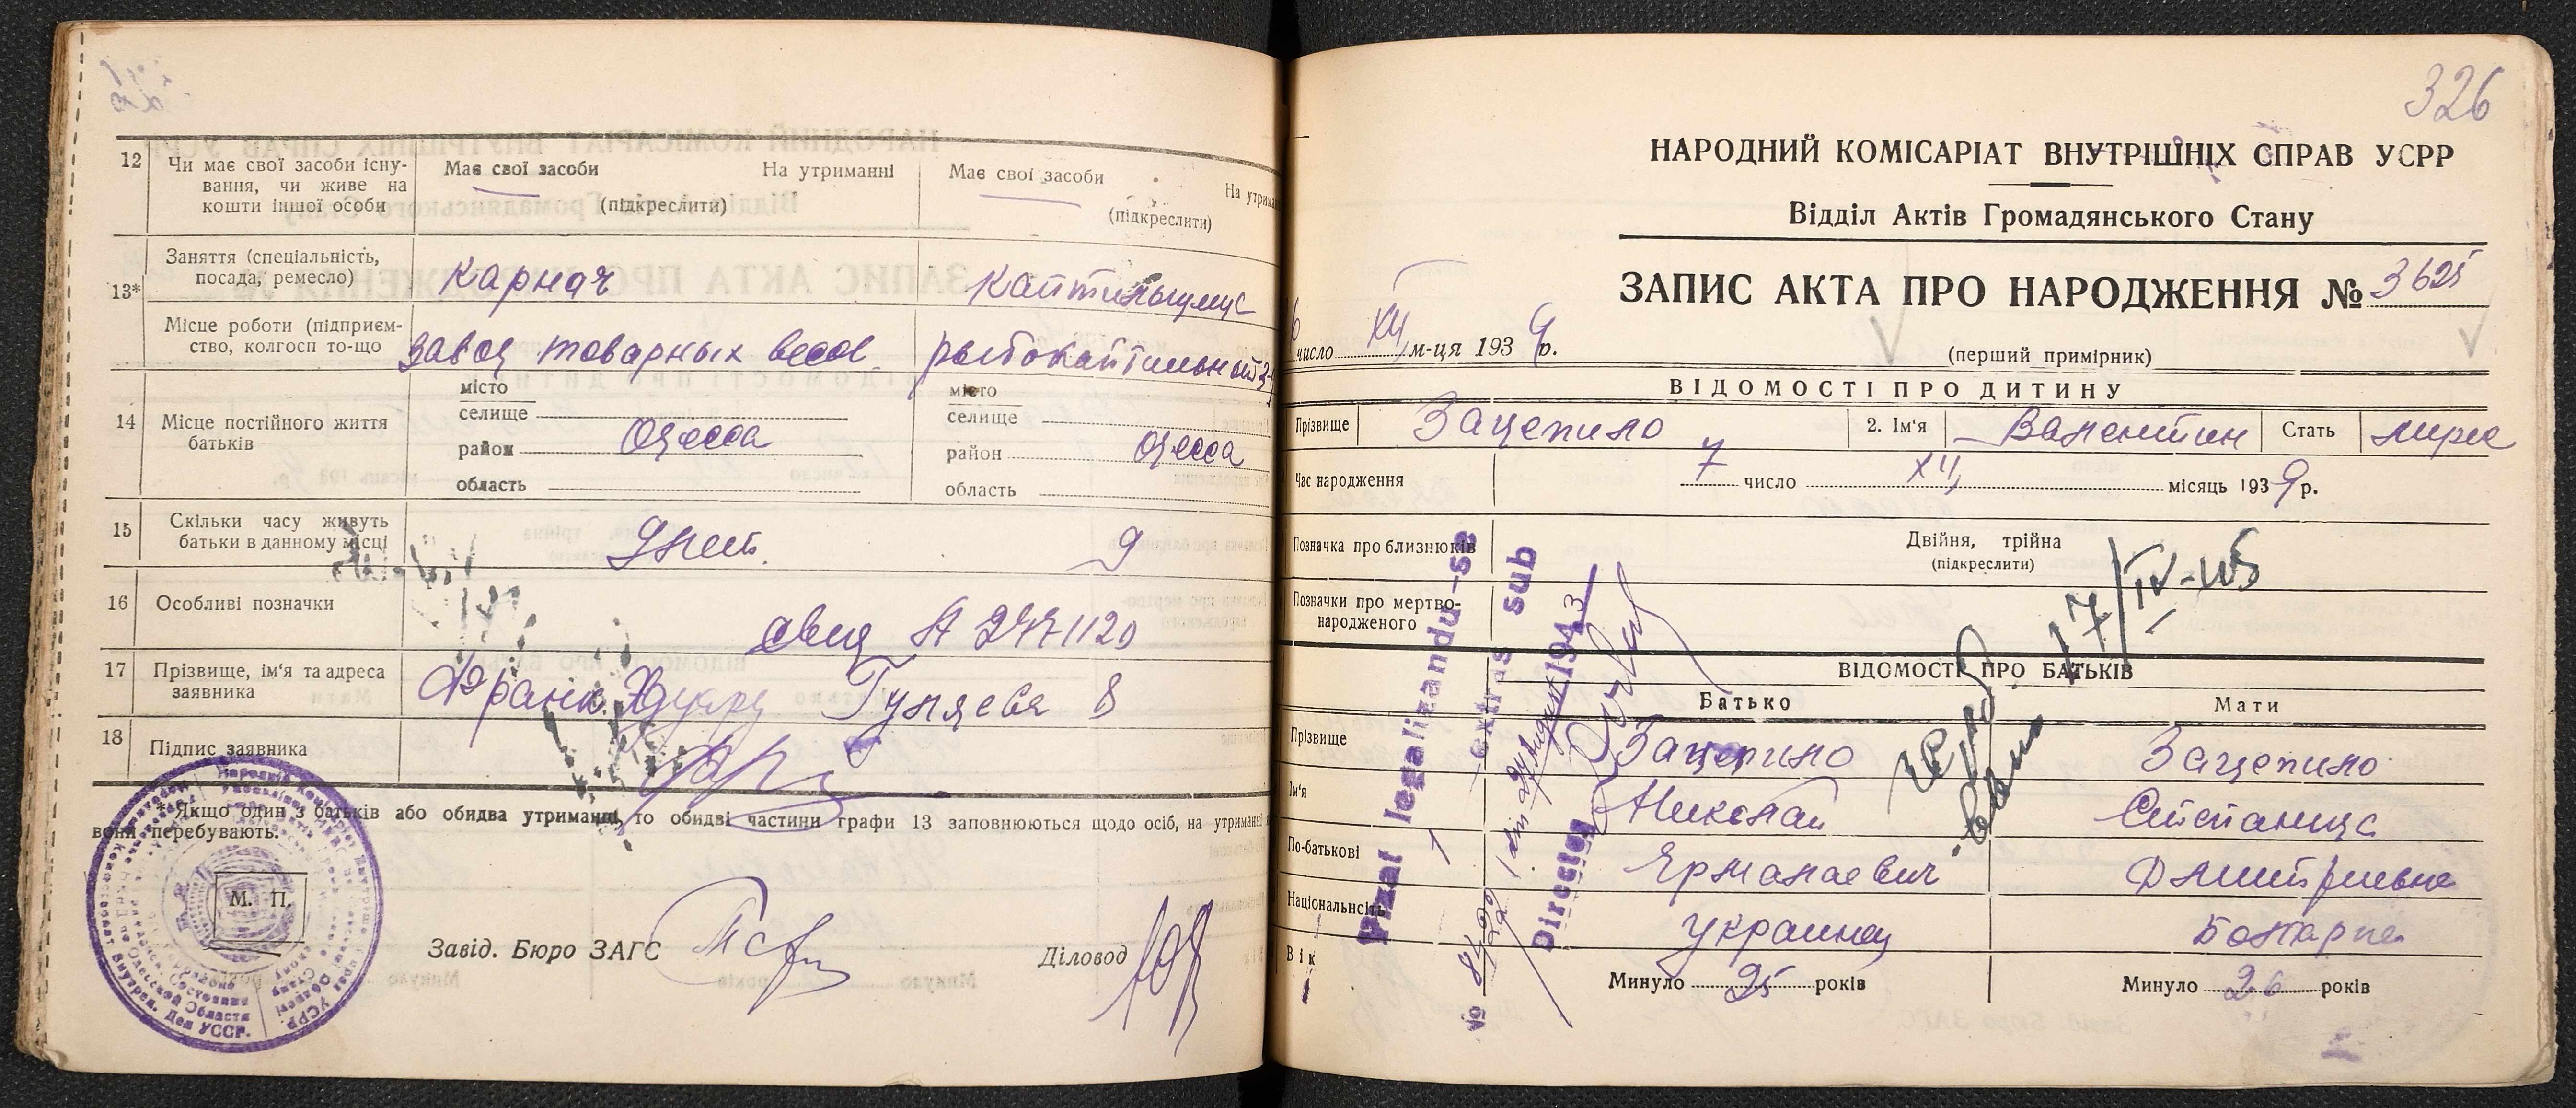 12
Чи має свої засоби існу-
вання, чи живе на
кошти іншої особи
Має свої засоби На утриманні
(підкреслити)
Має свої засоби
(підкреслити)
13*
Заняття (спеціальність,
посада, ремесло)
Місце роботи (підприєм-
ство, колгосп то-що
завод товарных весов
14
Місце постійного життя
батьків
місто
селище
район Одесса
область
місто
селище
район Одесса
область
15
Скільки часу живуть
батьки в данному місці
9 лет.
9
16
Особливі позначки
17
Прізвище, ім'я та адреса
заявника
Гуляева 8
18
Підпис заявника
* Якщо один з батьків або обидва утриманці, то обидві частини графи 13 заповнюються щодо осіб, на утриманні
вони перебувають.
М. П.
Завід. Бюро ЗАГС
Діловод
326
НАРОДНИЙ КОМІСАРІАТ ВНУТРІШНІХ СПРАВ УСРР
Відділ Актів Громадянського Стану
ЗАПИС АКТА ПРО НАРОДЖЕННЯ № 3625
число XII м-ця 1939 р.
(перший примірник)
ВІДОМОСТІ ПРО ДИТИНУ
Прізвище Зацепило 2. Ім'я Валентин Стать
Час народження 7 число XII місяць 1939 р.
Позначка про близнюків
Двійня, трійна
(підкреслити)
Позначки про мертво-
народженого
Vizat legalizandu-se
extras sub
1943
Director
17/IV-45
ВІДОМОСТІ ПРО БАТЬКІВ
Батько Мати
Прізвище Зацепило Зацепило
Ім'я Николай Степанида
По-батькові Дмитриевна
Національнсіть украинец Болгарка
Вік Минуло 25 років Минуло 26 років